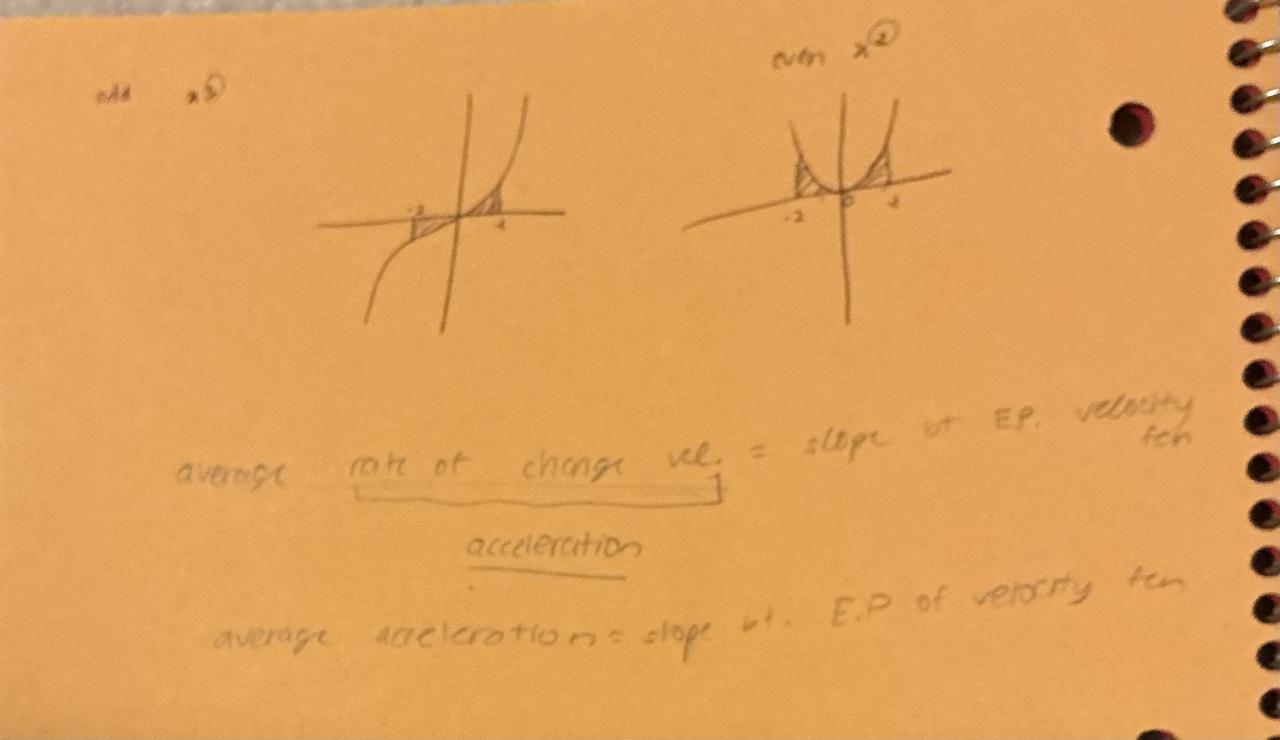 odd x³
even x²
-2
-2 0 2
average rate of change vel. = slope bt EP. velocity
fcn
acceleration
average acceleration = slope bt. E.P of velocity fcn